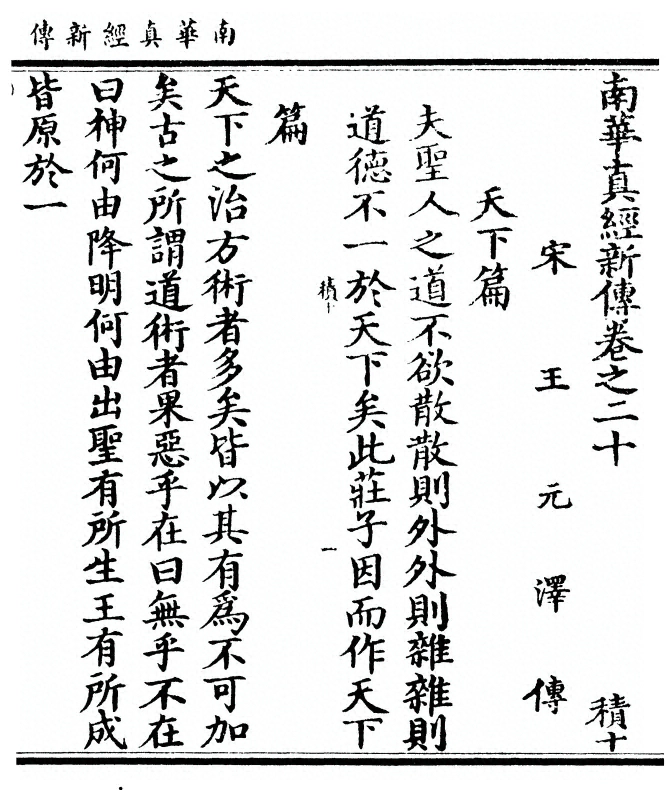 南華真經新傳
南華真經新傳卷之二十
積十
宋王元澤傳
天下篇
夫聖人之道不欲散散則外外則雜雜則
道德不一於天下矣此莊子因而作天下
積十
一
篇
天下之治方術者多矣皆以其有爲不可加
矣古之所謂道術者果惡乎在曰無乎不在
曰神何由降明何由出聖有所生王有所成
皆原於一